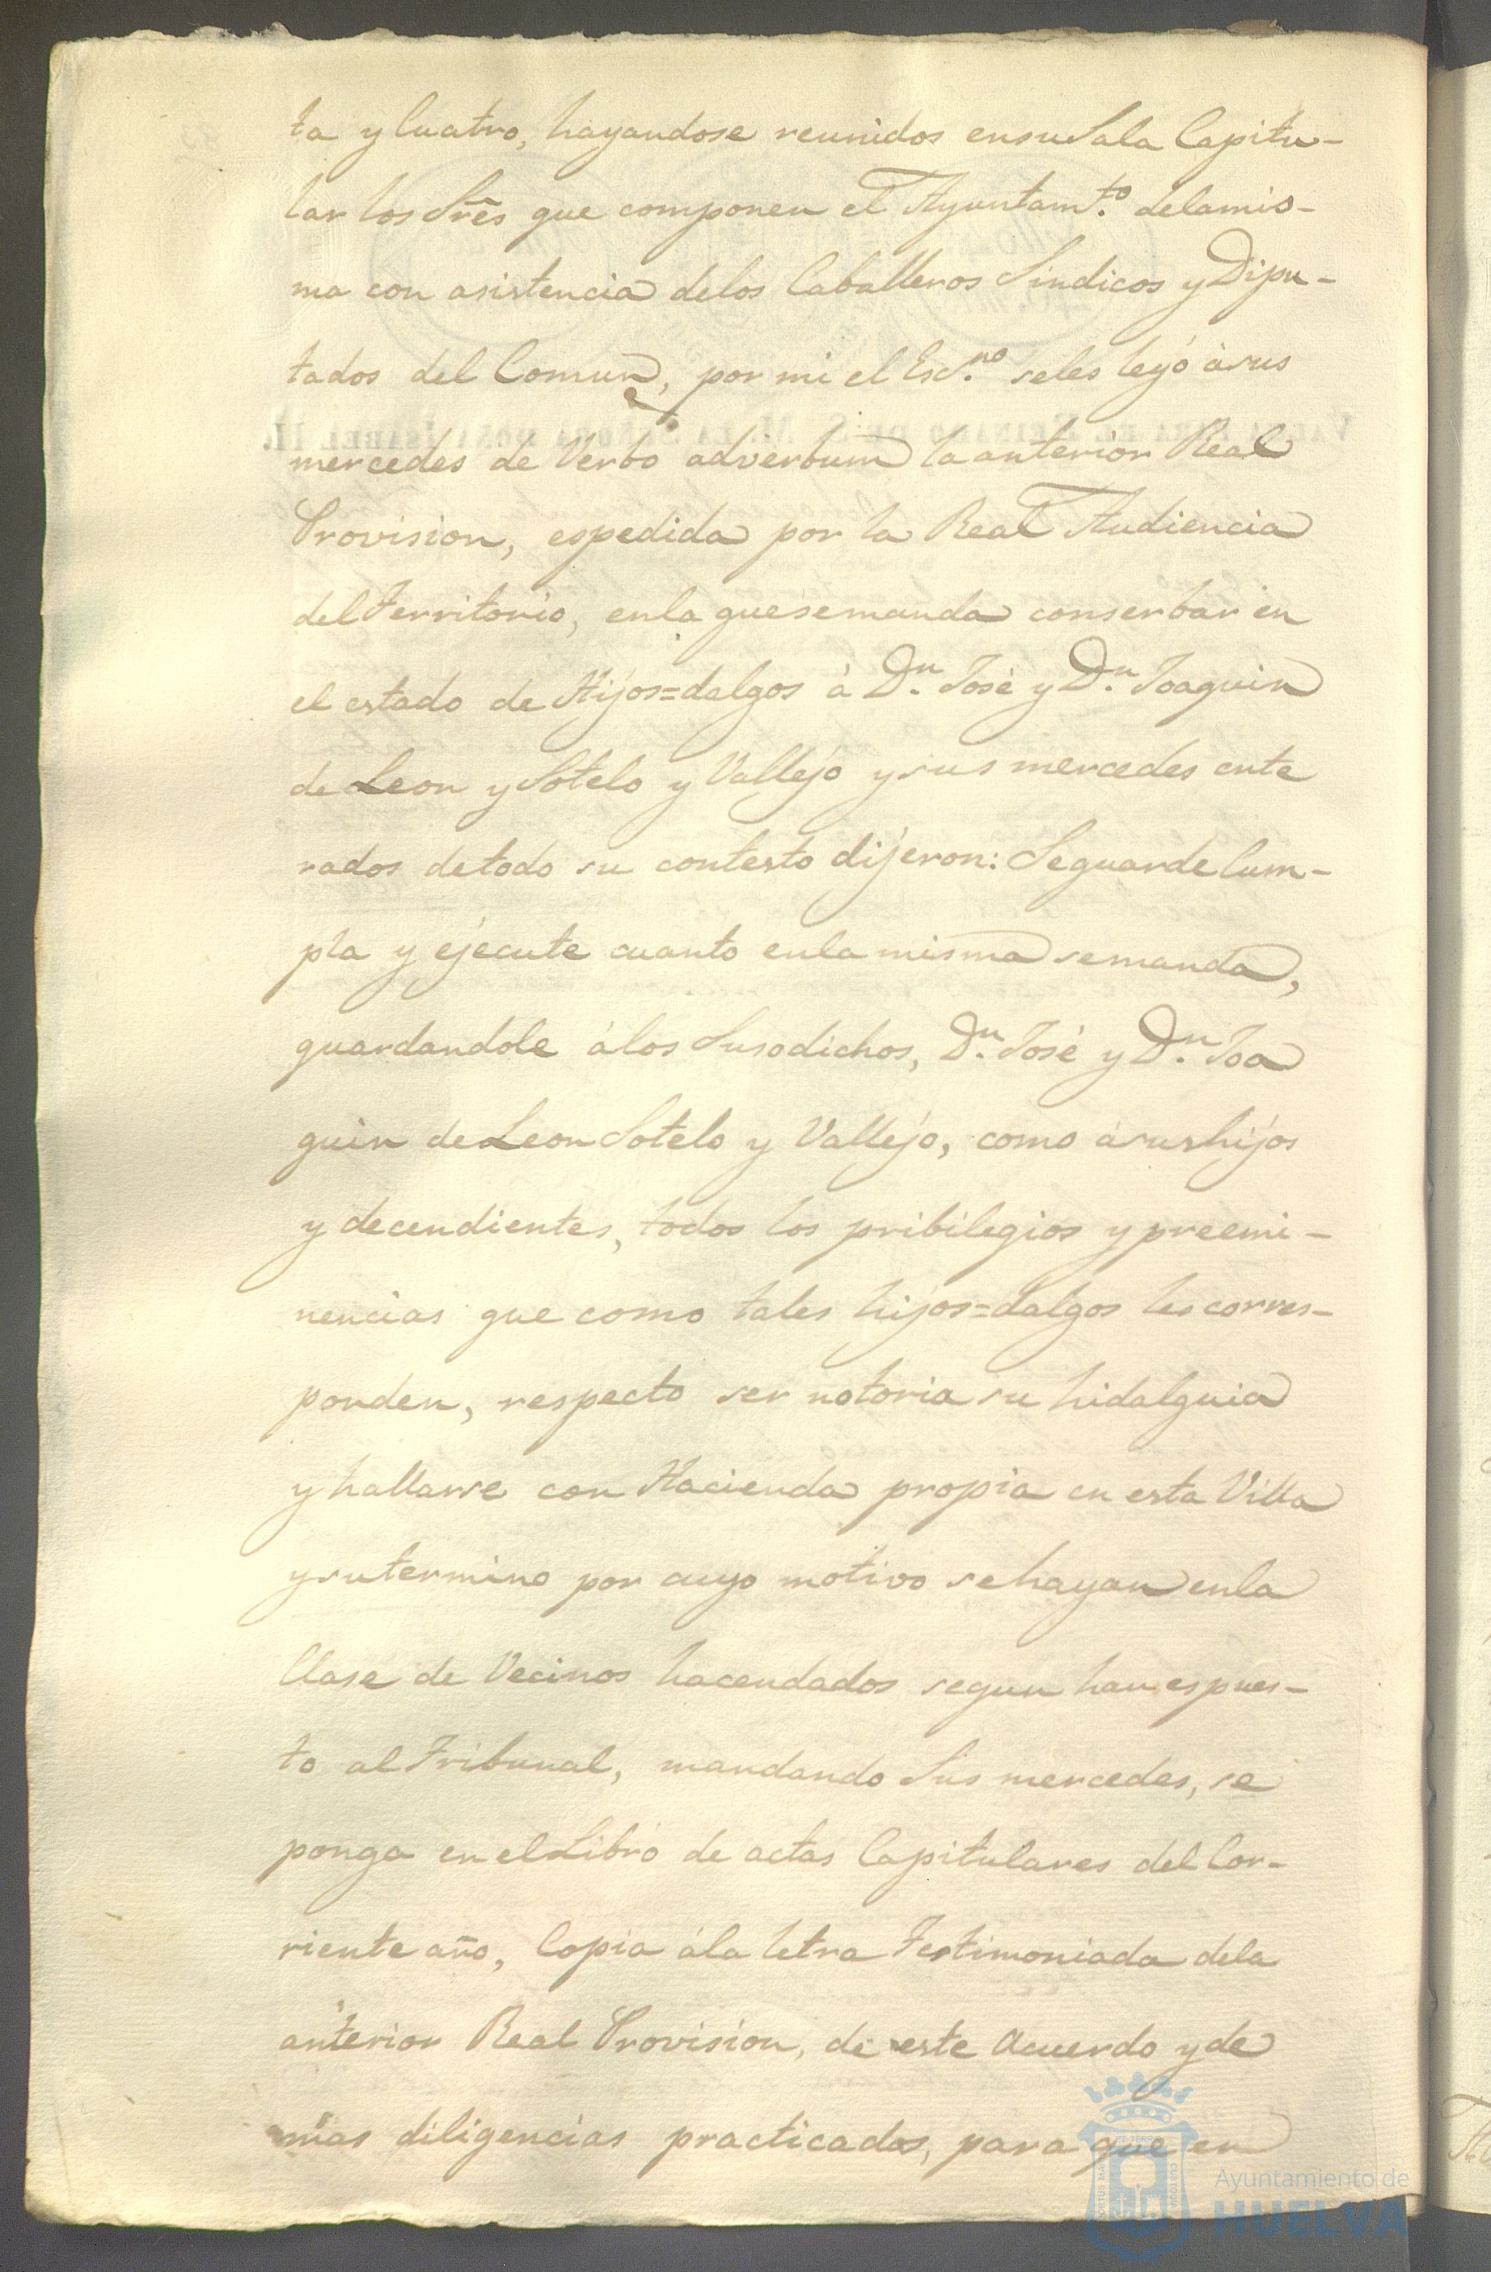 ta y Cuatro, hayandose reunidos ensu Sala Capitu-
lar los Srẽs que componen el Ayuntam.to delamis-
ma con asistencia delos Caballeros Sindicos y Dipu-
tados del Comun, por mi el Esc.no seles leyó àsus
VALGA PARA EL REINADO DE S. M. LA SEÑORA DOÑA ISABEL II.
mercedes de Verbo adverbum la anterior Real
Provision, espedida por la Real Audiencia
del Territorio, enla quesemanda conserbar en
el estado de Hijos=dalgos à D.n José y D.n Joaquin
de Leon y Sotelo y Vallejo y sus mercedes ente
rados detodo su contesto dijeron: Seguarde Cum-
pla y ejecute cuanto enla misma semanda,
guardandole álos Susodichos, D.n José y D.n Joa
quin de Leon Sotelo y Vallejo, como ásus hijos
y decendientes, todos los pribilegios y preemi-
nencias que como tales hijos=dalgos les corres-
ponden, respecto ser notoria su hidalguia
y hallarse con Hacienda propia en esta Villa
y sutermino por cuyo motivo sehayan enla
Clase de Vecinos hacendados segun han espues-
to al Tribunal, mandando Sus mercedes, se
ponga en el Libro de actas Capitulares del Cor-
riente año, Copia ála letra Testimoniada dela
anterior Real Provision, de este Acuerdo y de
mas diligencias practicadas, para que en
Ayuntamiento de
HUELVA